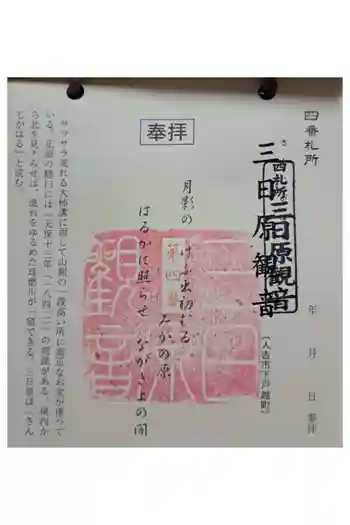 四番札所
三日原観音
（人吉市下戸越町）
年　月　日　参拝
奉拝
月影の けふ出初むる みかの原
はるかに照らせ ながきよの闇
サラサラ流れる大柿溝に面して山腹の一段高い所に適正なお堂が建って
いる。正面の鰐口には「天保十三年（一八四二）の刻銘がある。境内か
ら北を見わたせば、流れをゆるめた球磨川が一望できる。三日原は「さん
じがはる」と読む。